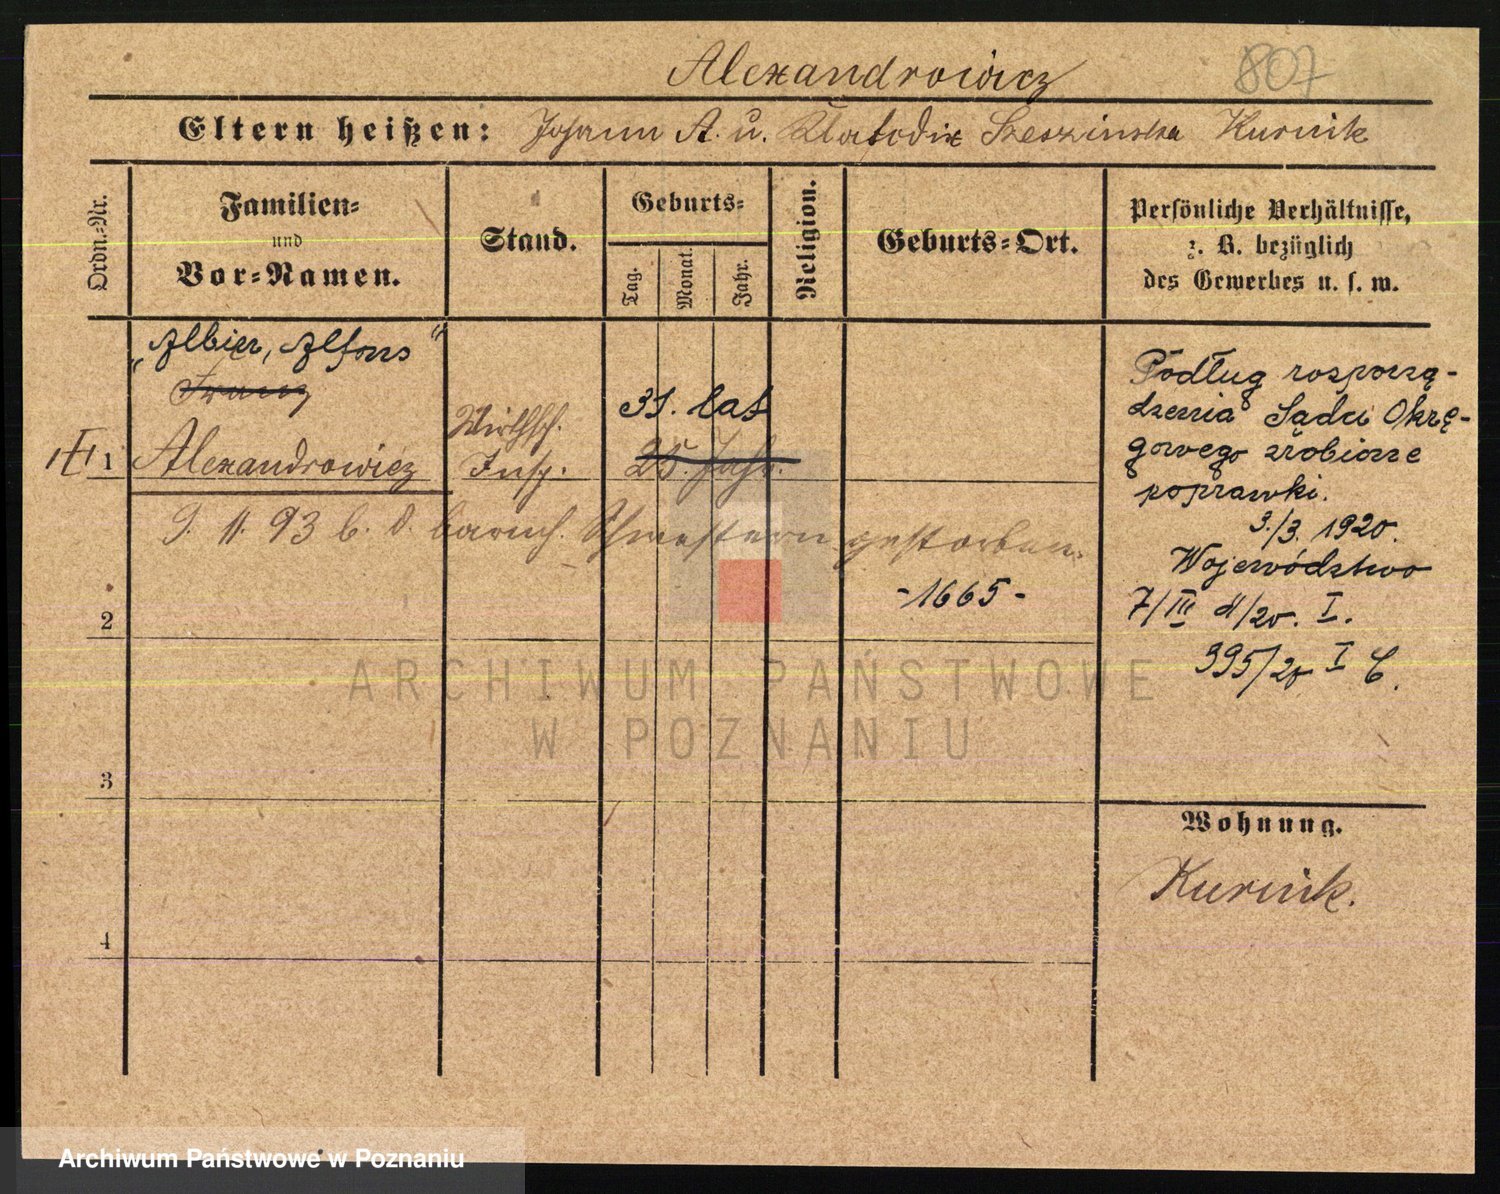 Alexandrowicz
807
Eltern heißen: Johann A. u. Szeszinska Kurnik
Ordn.-Nr.
Familien-
und
Vor-Namen.
Stand.
Geburts-
Tag.
Monat.
Jahr.
Religion.
Geburts-Ort.
Persönliche Verhältnisse,
z. B. bezüglich
des Gewerbes u. s. w.
„Albin, Alfons"
Franz
1
Alexandrowicz
Wirthsch.
Insp.
31. lat
25. Jahr.
9. 11. 93 b. d. barmh. Schwestern gestorben.
-1665-
Podług rosporzą-
dzenia Sądu Okrę-
gowego zrobione
poprawki.
3./3. 1920.
Województwo
7/III 4/20. I.
395/20 I C.
2
3
4
Wohnung.
Kurnik.
ARCHIWUM PAŃSTWOWE
W POZNANIU
Archiwum Państwowe w Poznaniu